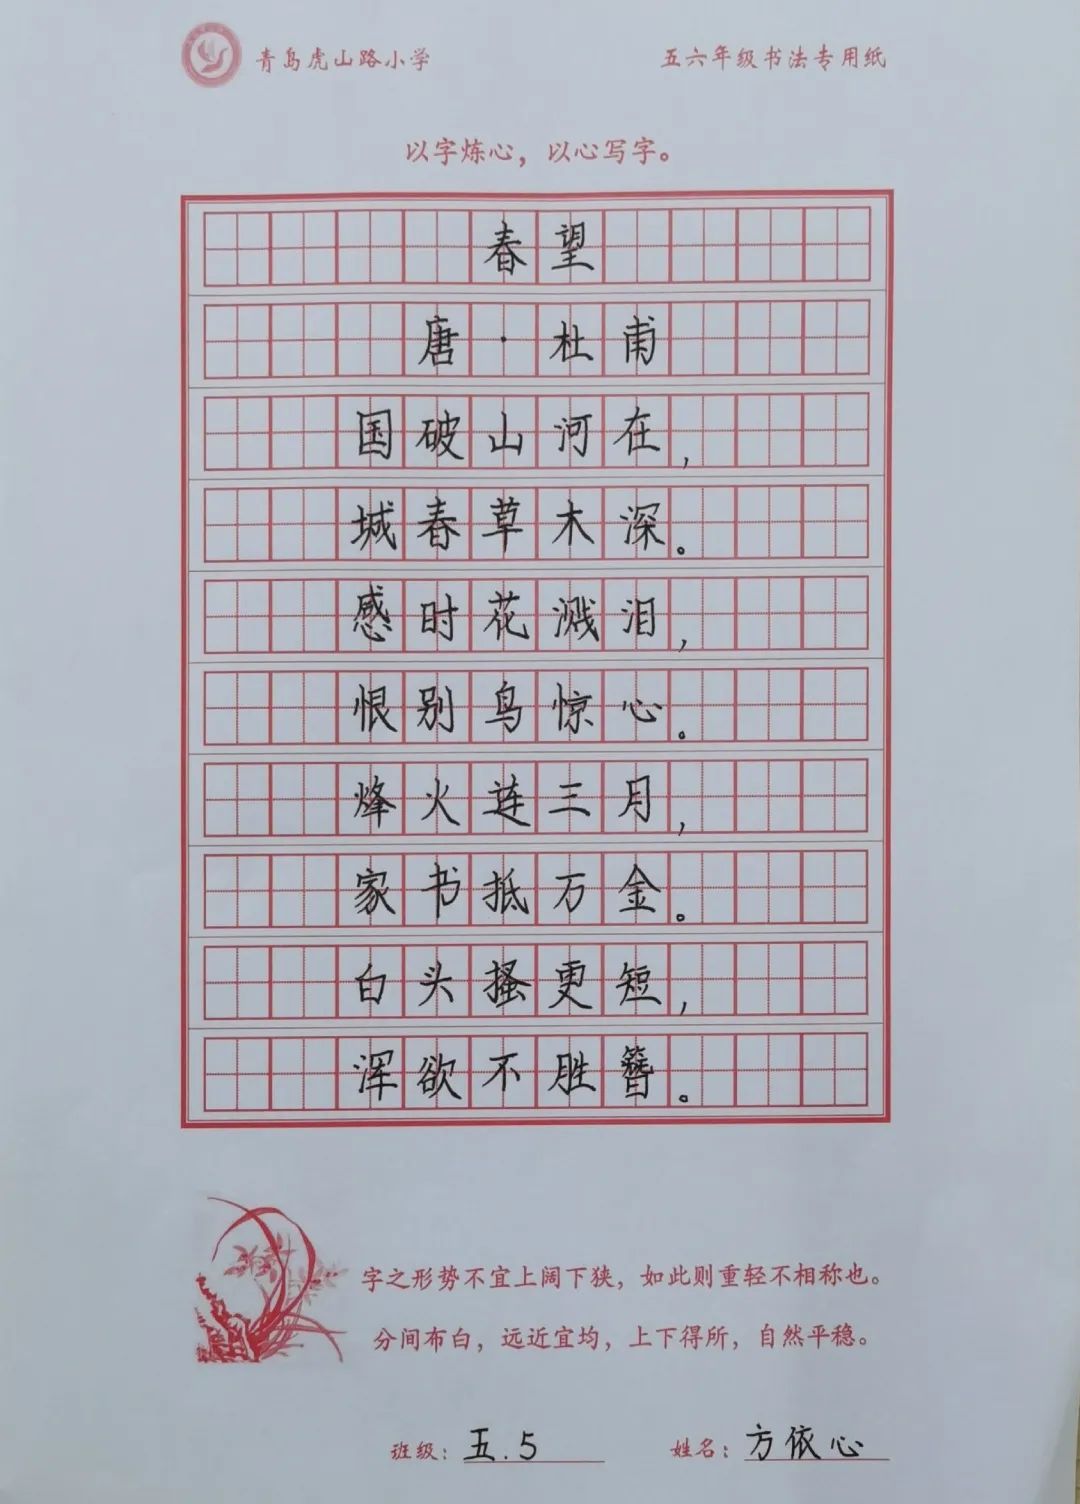 青岛虎山路小学 五六年级书法专用纸
以字炼心，以心写字。
春望
唐·杜甫
国破山河在，
城春草木深。
感时花溅泪，
恨别鸟惊心。
烽火连三月，
家书抵万金。
白头搔更短，
浑欲不胜簪。
字之形势不宜上阔下狭，如此则重轻不相称也。
分间布白，远近宜均，上下得所，自然平稳。
班级：五.5 姓名：方依心